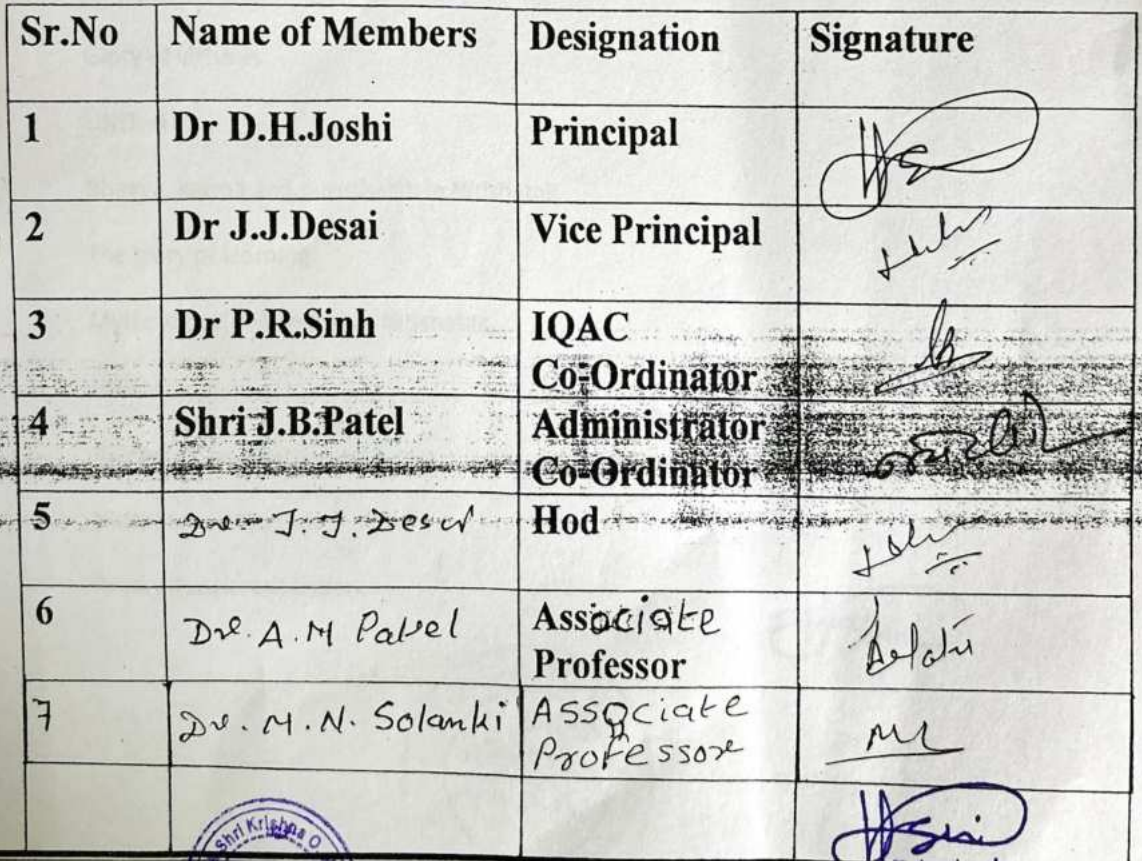 Sr.No Name of Members Designation Signature
1 Dr D.H.Joshi Principal
2 Dr J.J.Desai Vice Principal
3 Dr P.R.Sinh IQAC
Co-Ordinator
4 Shri J.B.Patel Administrator
Co-Ordinator
5 Dr. J.J. Desai Hod
6 Dr. A.M Patel Associate
Professor
7 Dr. M.N. Solanki Associate
Professor
Shri Krishna